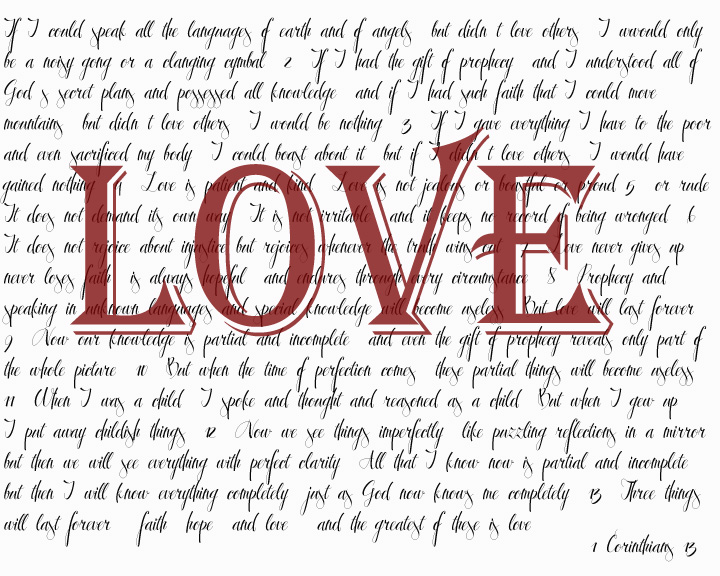 If I could speak all the languages of earth and of angels but didn t love others I wwould only
be a noisy gong or a clanging cymbal 2 If I had the gift of prophecy and I understood all of
God s secret plans and possessed all knowledge and if I had such faith that I could move
mountains but didn t love others I would be nothing 3 If I gave everything I have to the poor
and even sacrificed my body I could boast about it but if I didn t love others I would have
gained nothing 4 Love is patient and kind Love is not jealous or boastful or proud 5 or rude
It does not demand its own way It is not irritable and it keeps no record of being wronged 6
It does not rejoice about injustice but rejoices whenever the truth wins out 7 Love never gives up
never loses faith is always hopeful and endures through every circumstance 8 Prophecy and
speaking in unknown languages and special knowledge will become useless But love will last forever
LOVE
9 Now our knowledge is partial and incomplete and even the gift of prophecy reveals only part of
the whole picture 10 But when the time of perfection comes these partial things will become useless
11 When I was a child I spoke and thought and reasoned as a child But when I grew up
I put away childish things 12 Now we see things imperfectly like puzzling reflections in a mirror
but then we will see everything with perfect clarity All that I know now is partial and incomplete
but then I will know everything completely just as God now knows me completely 13 Three things
will last forever faith hope and love and the greatest of these is love
1 Corinthians 13